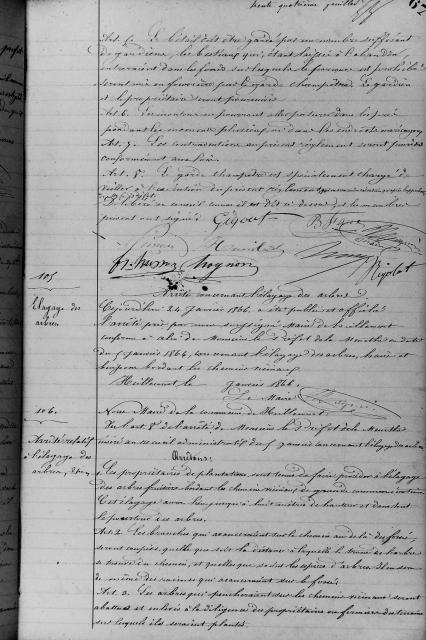 trente quatrième feuillet
Art. 5. Le bétail doit être gardé par un nombre suffisant
de gardiens, les bestiaux qui, étant laissés à l'abandon,
entreraient dans les fonds sur lesquels le parcours est prohibé
seront mis en fourrière par le garde champêtre. Le gardien
et le propriétaire seront poursuivis.
Art. 6. Les moutons ne pourront
pendant les moments pluvieux ni dans les endroits marécageux
Art. 7. Les contraventions au présent règlement seront punies
conformément aux lois.
Art. 8. Le garde champêtre est spécialement chargé de
veiller à l'exécution du présent règlement
Délibéré en conseil
présent ont signé Gigout
Mognon
Nicolat
105
Elagage des
arbres
Arrêté concernant l'élagage des arbres
Cejourd'hui 24 Janvier 1866, a été publié et affiché
l'arrêté pris par nous soussigné Maire de
conforme à celui de Monsieur le Préfet de la Meurthe en date
du 5 janvier 1866, concernant l'élagage des arbres, haies et
buissons bordant les chemins vicinaux.
le janvier 1866.
Le Maire
106.
Arrêté relatif
à l'élagage des
arbres,
Nous Maire de la commune de
Vu l'art 8 de l'arrêté de Monsieur le Préfet de la Meurthe
inséré au recueil administratif du 5 janvier concernant l'élagage des arbres
Arrêtons:
Les propriétaires de plantations sont tenus de faire procéder à l'élagage
des arbres fruitiers bordant les chemins vicinaux de grande communication
Cet élagage aura lieu jusqu'à huit mètres de hauteur et dans tout
le pourtour des arbres.
Art. 2. Les branches qui avanceraient sur le chemin au delà du fossé,
seront coupées, quelle que soit la distance à laquelle le tronc de l'arbre
se trouve du chemin, et quelles que soient les espèces d'arbres. Il en sera
de même des racines qui avanceraient sur le fossé.
Art. 3. Les arbres qui pencheraient sur les chemins vicinaux seront
abattus et enlevés à la diligence des propriétaires ou fermiers des terrains
sur lesquels ils seraient plantés.